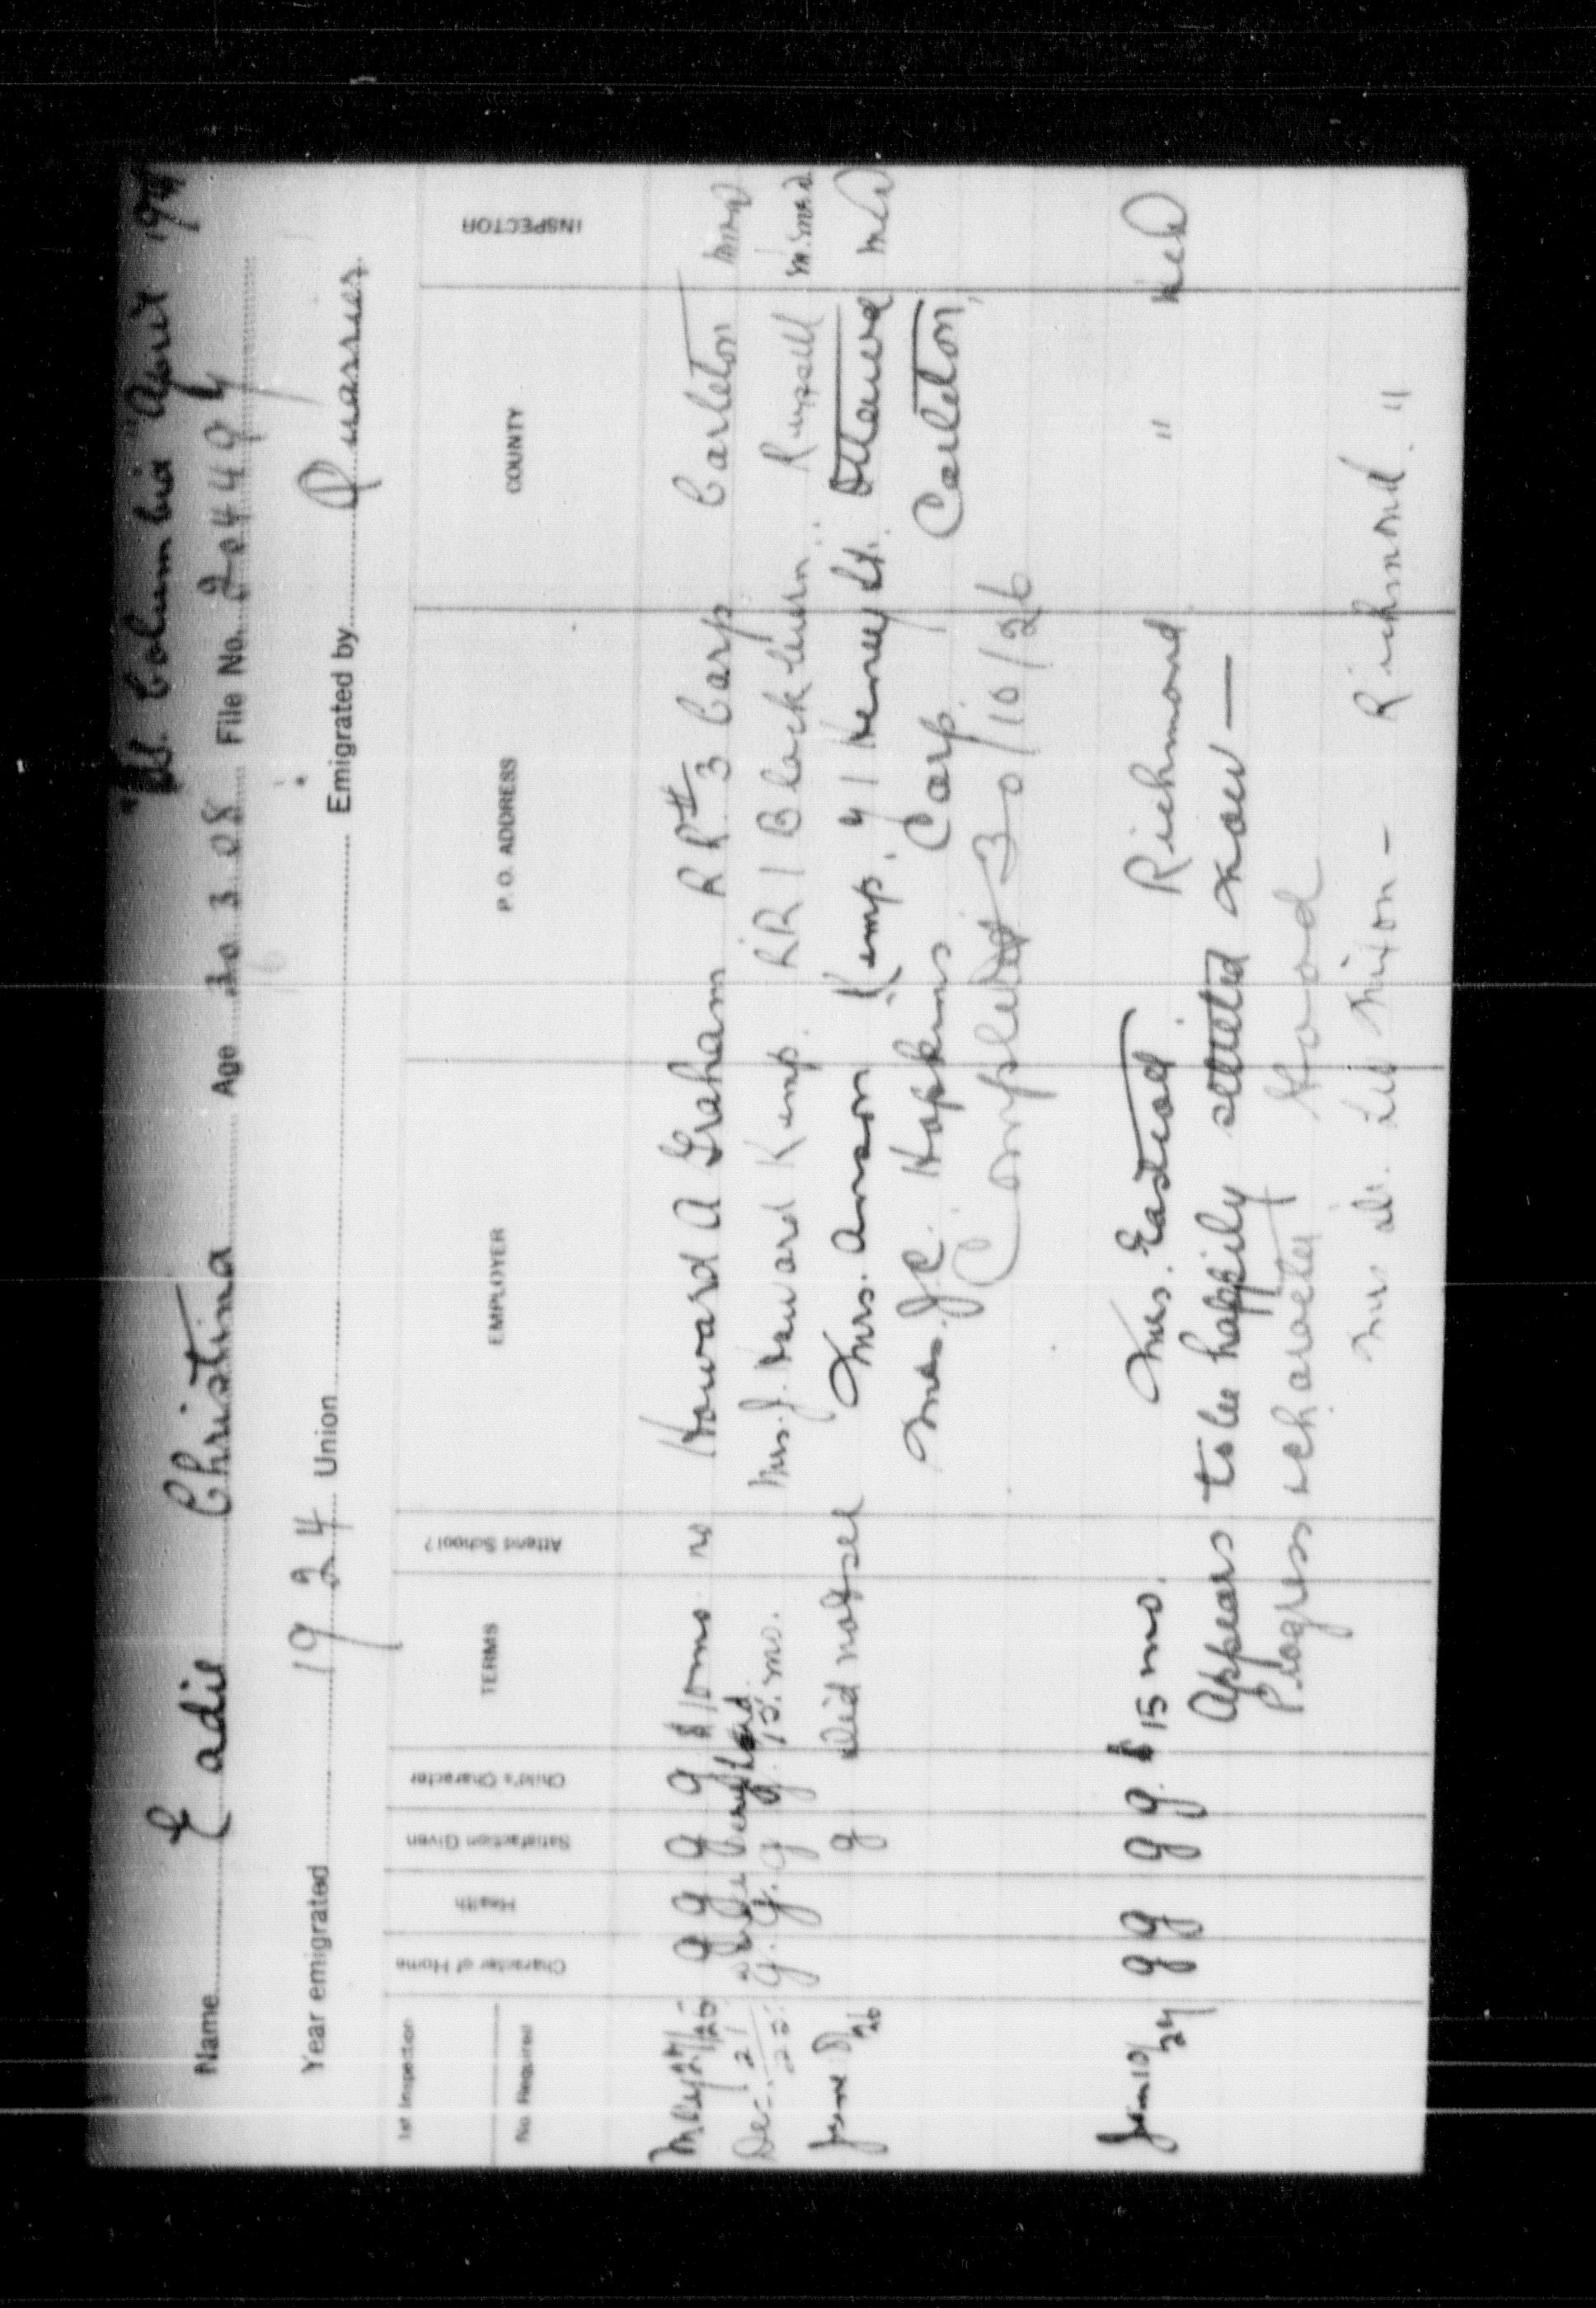 "S.S. Columbia" April 19
Name Eadie Christina Age 20 3 08 File No. 204494
Year emigrated 1924 Union Emigrated by Quarrier
1st Inspection
No. Required Character of Home Health Satisfaction Given Child's Character TERMS Attend School? EMPLOYER P. O. ADDRESS COUNTY INSPECTOR
May 27/25 g g g g $10 mo no Howard A Graham RR#3 Carp Carleton
Dec. 21/25 g. g. g g. 12. mo. Mrs. J. Howard Kemp. RR 1 Blackburn. Russell
June 8/26 g did not see Mrs. Anson Kemp, 41 Heney St. Ottawa
Mrs. J.C. Hopkins Carp. Carleton,
Completed 30/10/26
Jan 10/27 g g g g. $15 mo. Mrs. Eastwood. Richmond "
Appears to be happily settled now —
Progress & character Good
Mrs Dr. Nixon - Richmond. "